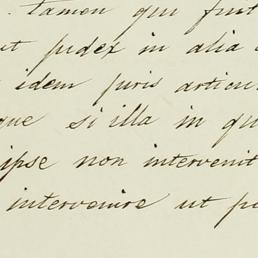 tamen qui fuit
ut judex in alia
idem juris articu
que si illa in qu
ipse non intervenit
intervenire ut p